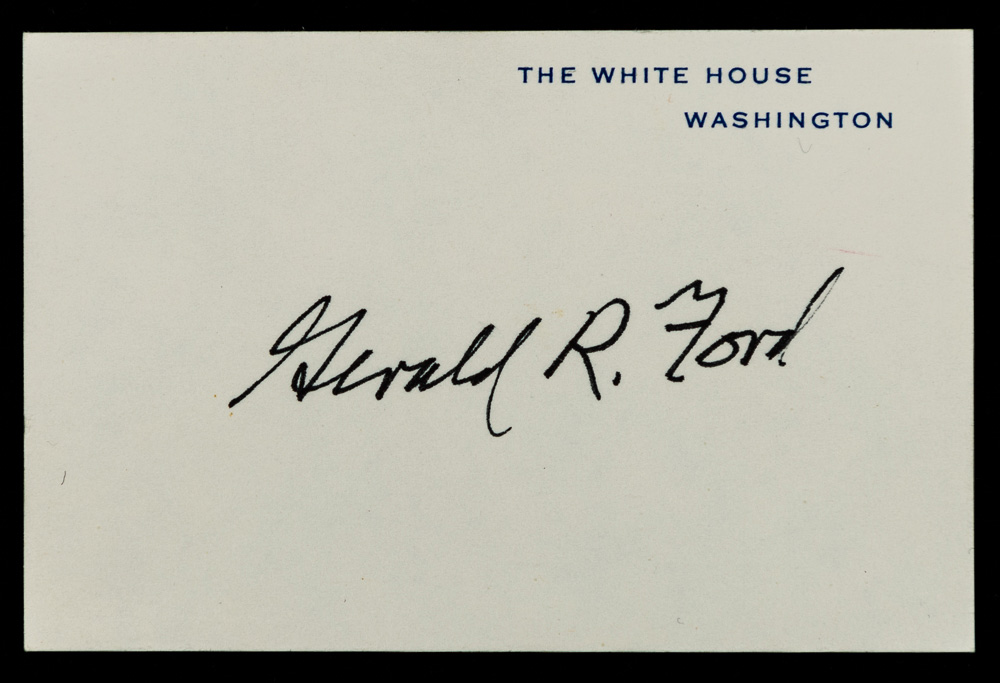 THE WHITE HOUSE
WASHINGTON
Gerald R. Ford